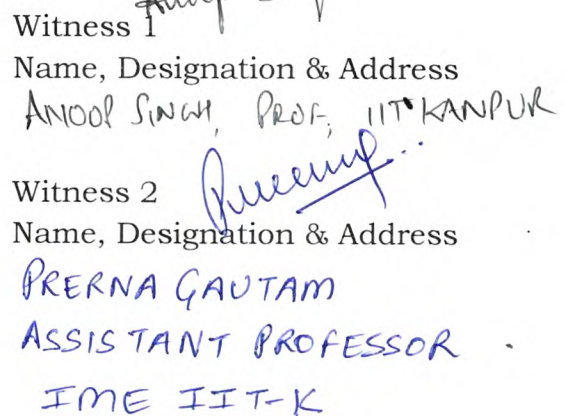 Witness 1
Name, Designation & Address
ANOOP SINGH, PROF, IIT KANPUR
Witness 2
Name, Designation & Address
PRERNA GAUTAM
ASSISTANT PROFESSOR
IME IIT-K